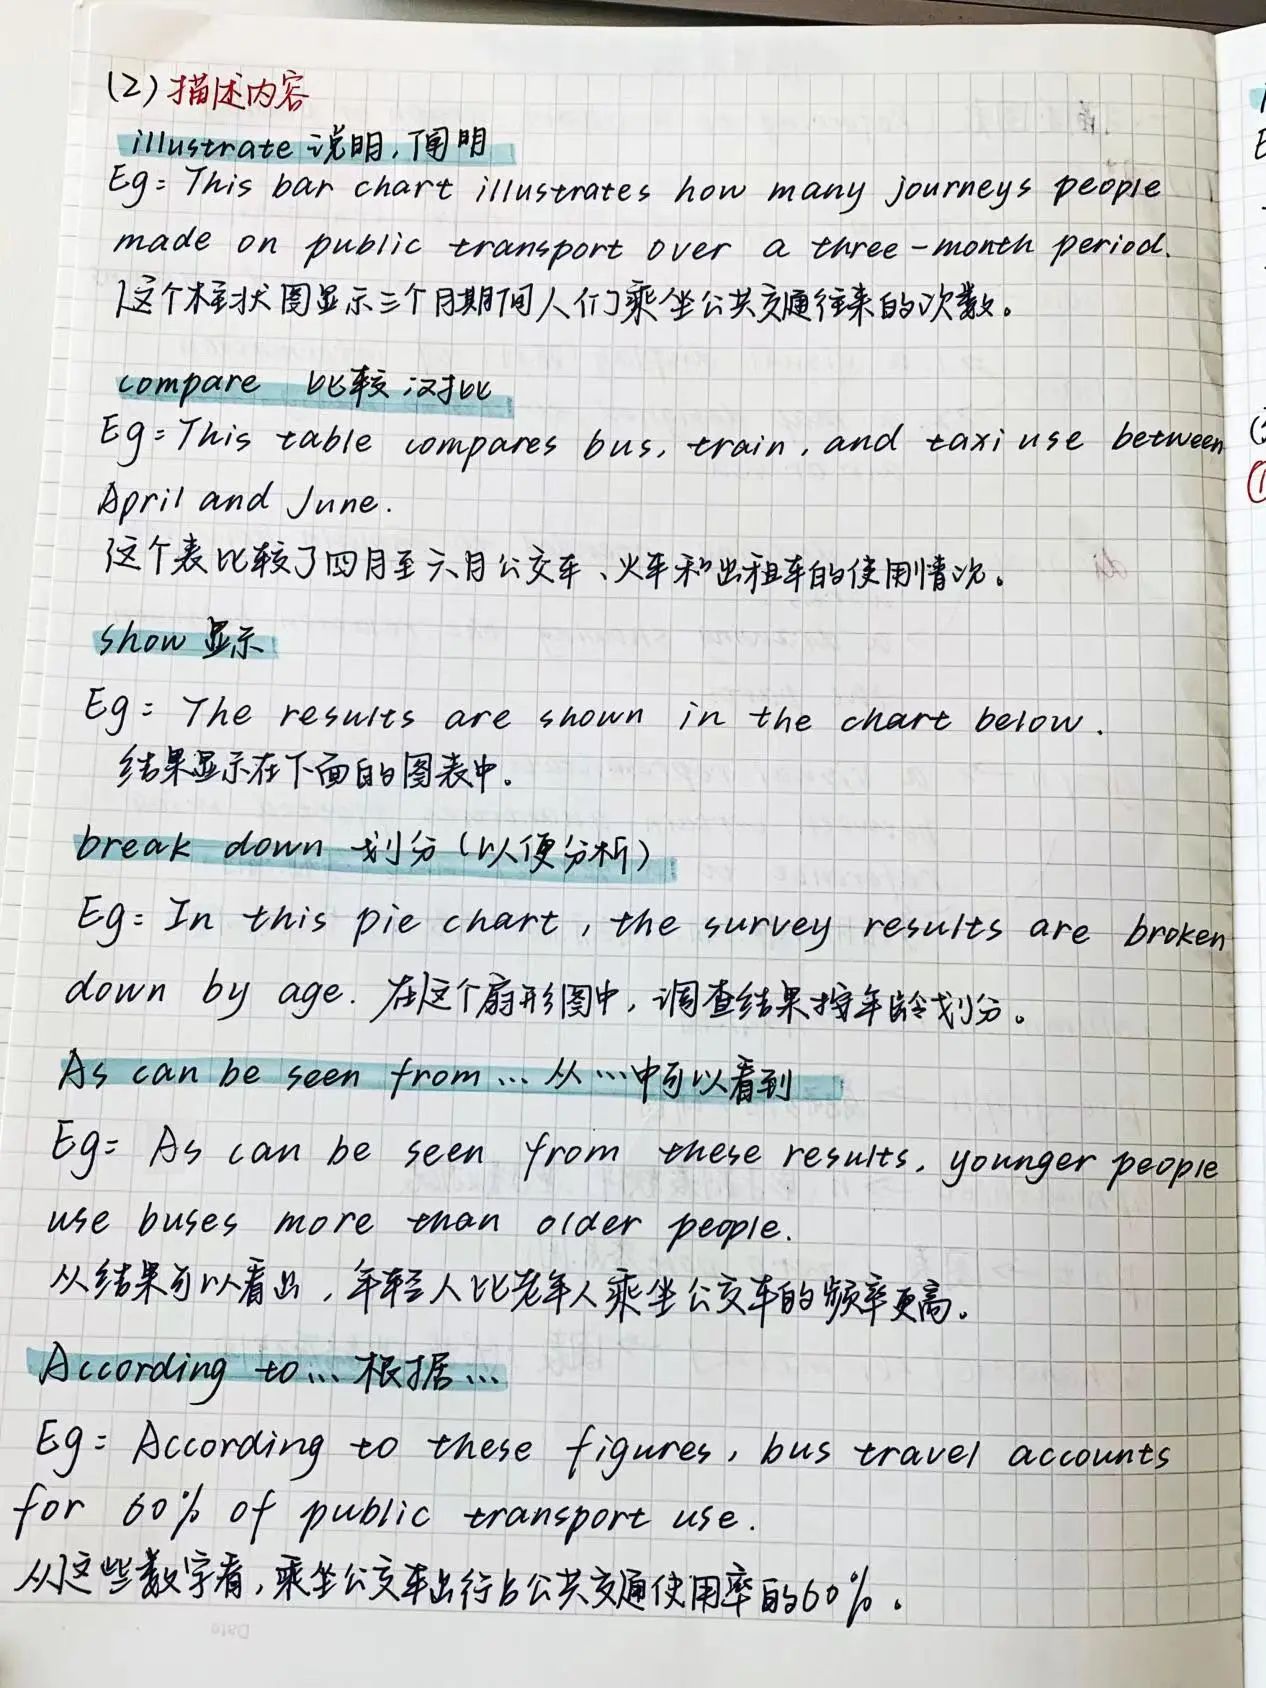 (2) 描述内容
illustrate 说明，阐明
Eg: This bar chart illustrates how many journeys people
made on public transport over a three-month period.
这个柱状图显示三个月期间人们乘坐公共交通往来的次数。
compare 比较 对比
Eg: This table compares bus, train, and taxi use between
April and June.
这个表比较了四月至六月公交车、火车和出租车的使用情况。
show 显示
Eg: The results are shown in the chart below.
结果显示在下面的图表中。
break down 划分（以便分析）
Eg: In this pie chart, the survey results are broken
down by age. 在这个扇形图中，调查结果按年龄划分。
As can be seen from... 从...中可以看到
Eg: As can be seen from these results, younger people
use buses more than older people.
从结果可以看出，年轻人比老年人乘坐公交车的频率更高。
According to... 根据...
Eg: According to these figures, bus travel accounts
for 60% of public transport use.
从这些数字看，乘坐公交车出行占公共交通使用率的60%。